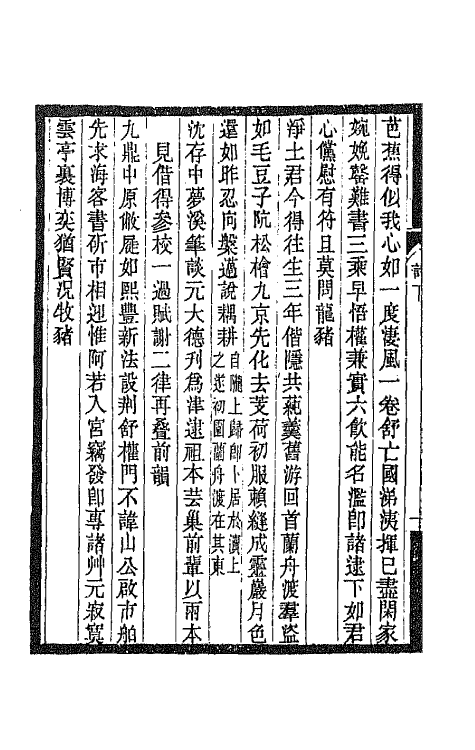 芭蕉得似我心如一度淒風一卷舒亡國涕洟揮已盡閑家
婉娩罄難書三乘早悟權兼實六飲能名濫卽諸逮下如君
心儻慰有符且莫問龍豬
淨土君今得往生三年偕隱共蒓羹舊游回首蘭舟渡羣盜
如毛豆子阬松檜九京先化去芰荷初服賴縫成靈巖月色
還如昨忍向槃邁說耦耕
自隴上歸卽卜居於滬上
之近初園蘭舟渡在其東
沈存中夢溪筆談元大德刋爲津逮祖本芸巢前輩以兩本
見借得參校一過賦謝二律再疊前韻
九鼎中原敝屣如熙豐新法設荆舒權門不諱山公啟市舶
先求海客書斫市相迎惟阿若入宮竊發卽專諸艸元寂寞
雲亭裏博奕猶賢況牧豬